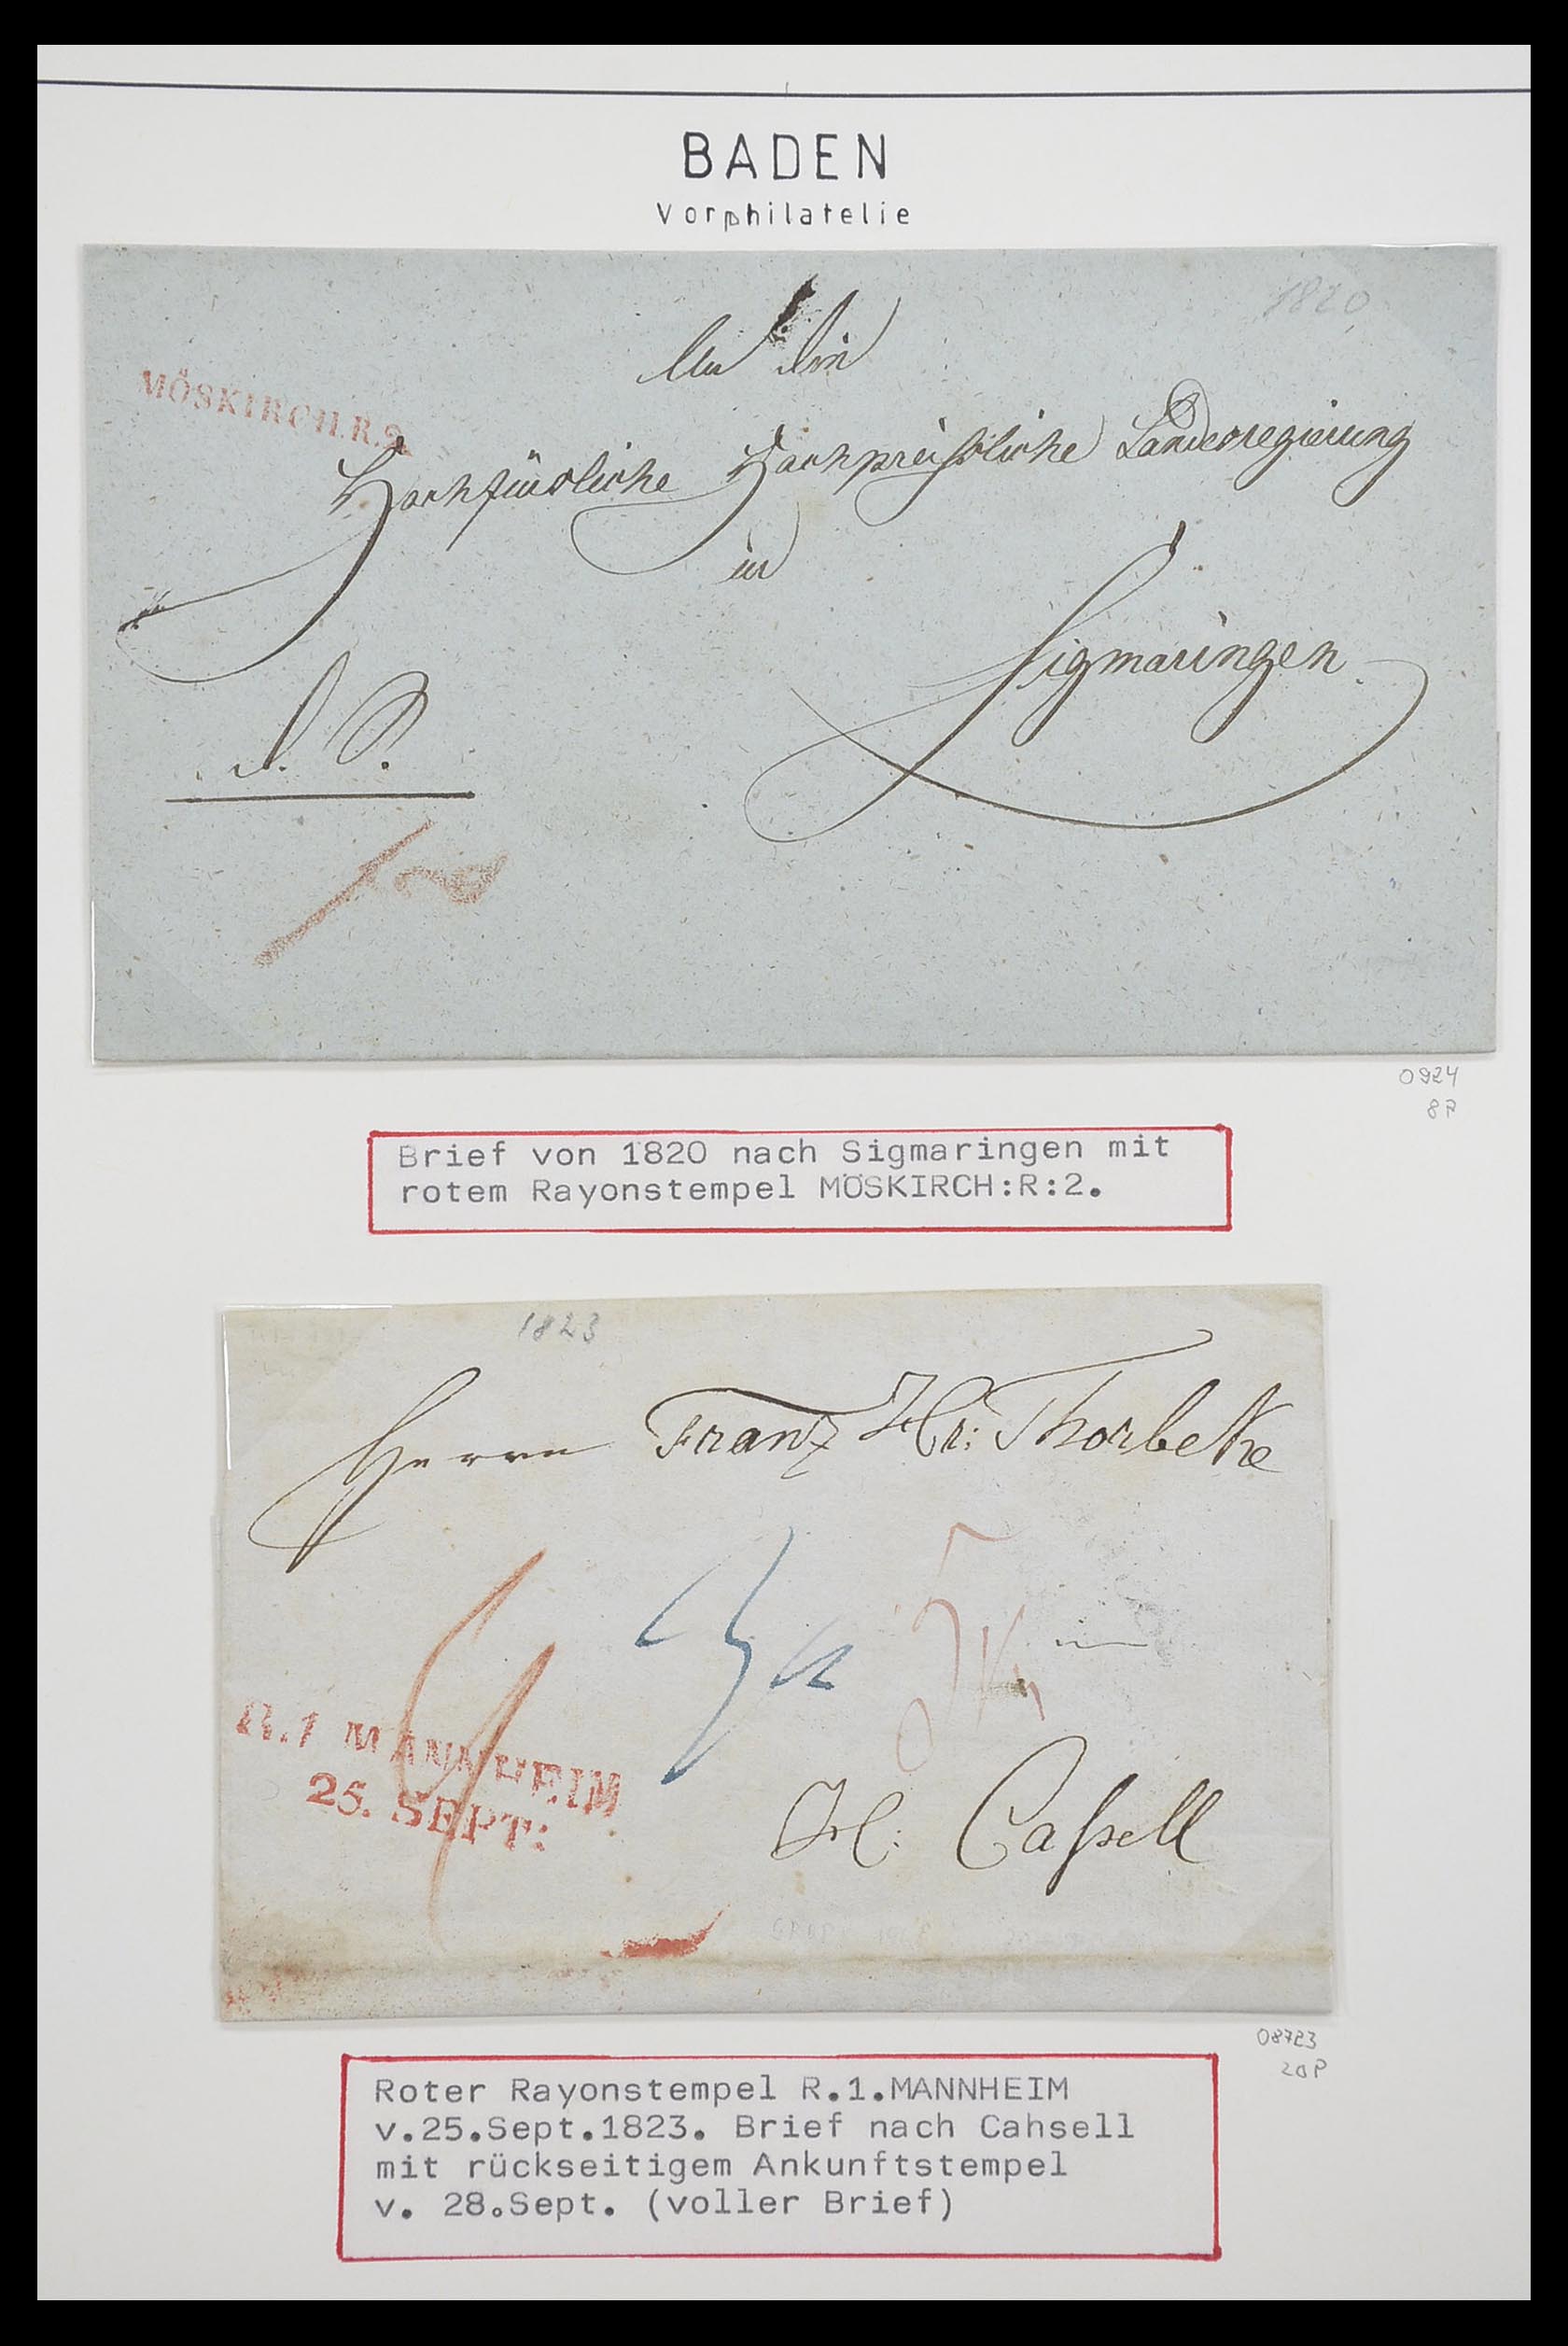 BADEN
Vorphilatelie
1820
An die
MÖSKIRCH.R.2.
Hochfürstliche Hochpreißliche Landesregierung
in
Sigmaringen.
0924
8P
Brief von 1820 nach Sigmaringen mit
rotem Rayonstempel MÖSKIRCH:R:2.
1823
Herrn Franz Hr: Thorbecke
R.1 MANNHEIM
25. SEPT:
H: Caſsell
08723
20P
Roter Rayonstempel R.1.MANNHEIM
v.25.Sept.1823. Brief nach Cahsell
mit rückseitigem Ankunftstempel
v. 28.Sept. (voller Brief)